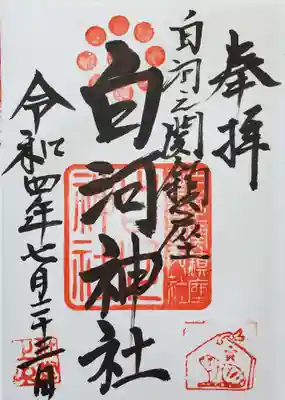 奉拝
白河之関鎮座
白河神社
令和四年七月二十三日